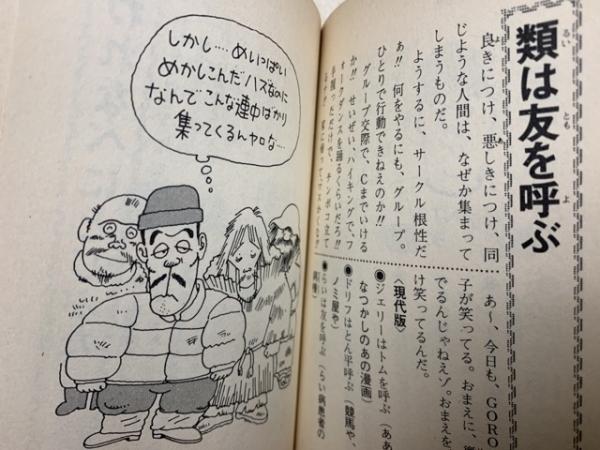 類は友を呼ぶ
るい
とも
よ
良きにつけ、悪しきにつけ、同
じような人間は、なぜか集まって
しまうものだ。
ようするに、サークル根性だ
ぁ!! 何をやるにも、グループ。
ひとりで行動できねえのか!!
グループ交際で、Cまでいける
か!! せいぜい、ハイキングで、フ
ォークダンスを踊るくらいだろ!!
手握っただけで、チンポコ立て
あ〜、今日も、GORO
子が笑ってる。おまえに、
でるんじゃねえゾ。おまえを
け笑ってるんだ。
〈現代版〉
●ジェリーはトムを呼ぶ(ああ
なつかしのあの漫画)
●ドリフはとん平呼ぶ(競馬や、
ノミ屋や)
●らいは友を呼ぶ(らい病患者の
しかし…めいっぱい
めかしこんだハズなのに
なんでこんな連中ばかり
集ってくるんヤロな…